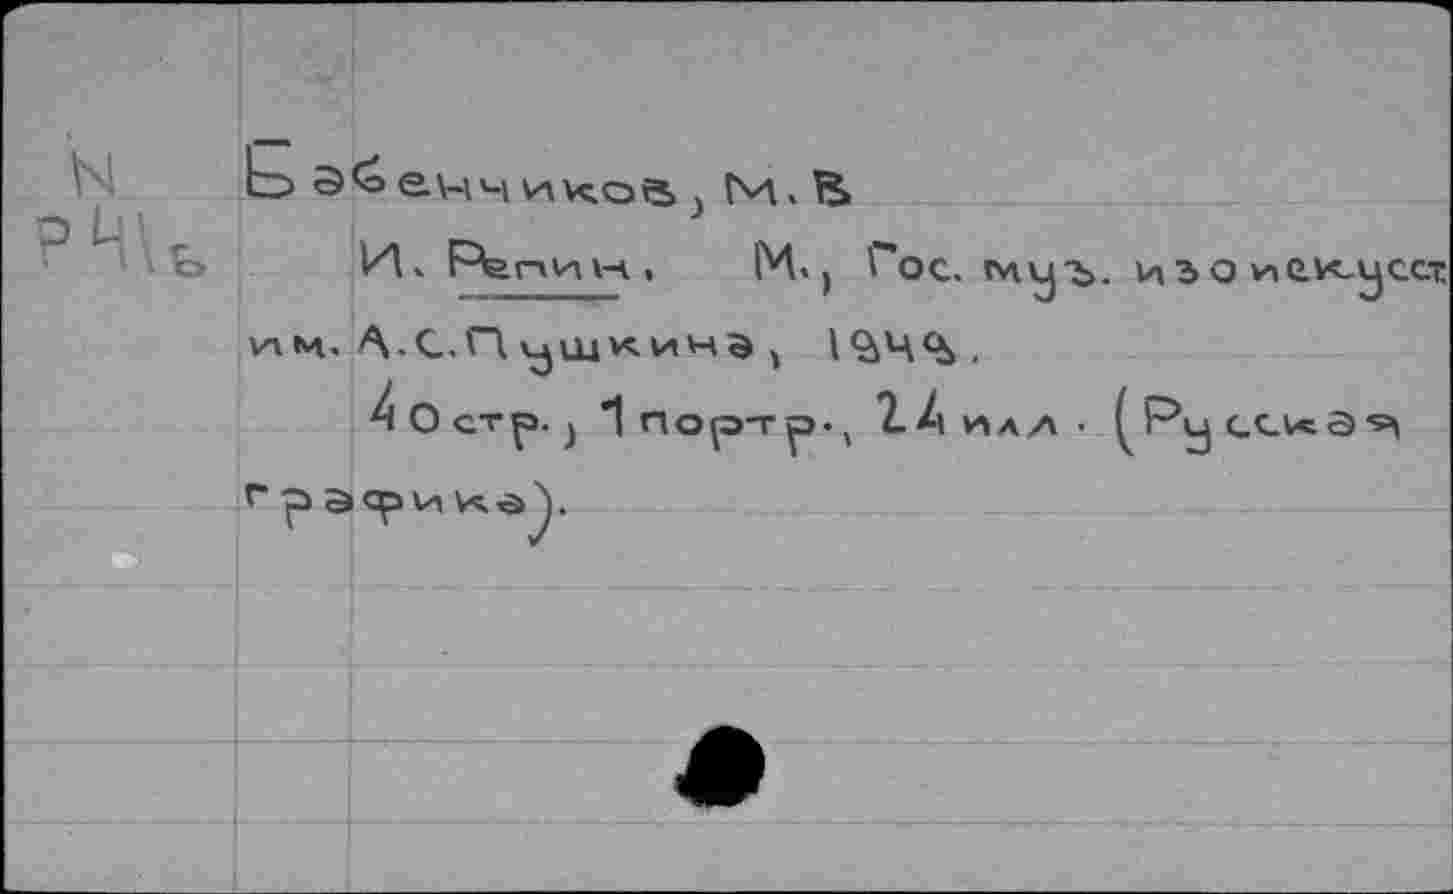 N
Р41б
Бабенчиков, М.В
И. Репин. М., Гос. муз. изоискусст.
им. А.С.Пушкина, 1949.
40 стр., 1 портр., 24 илл. (Русская
графика).